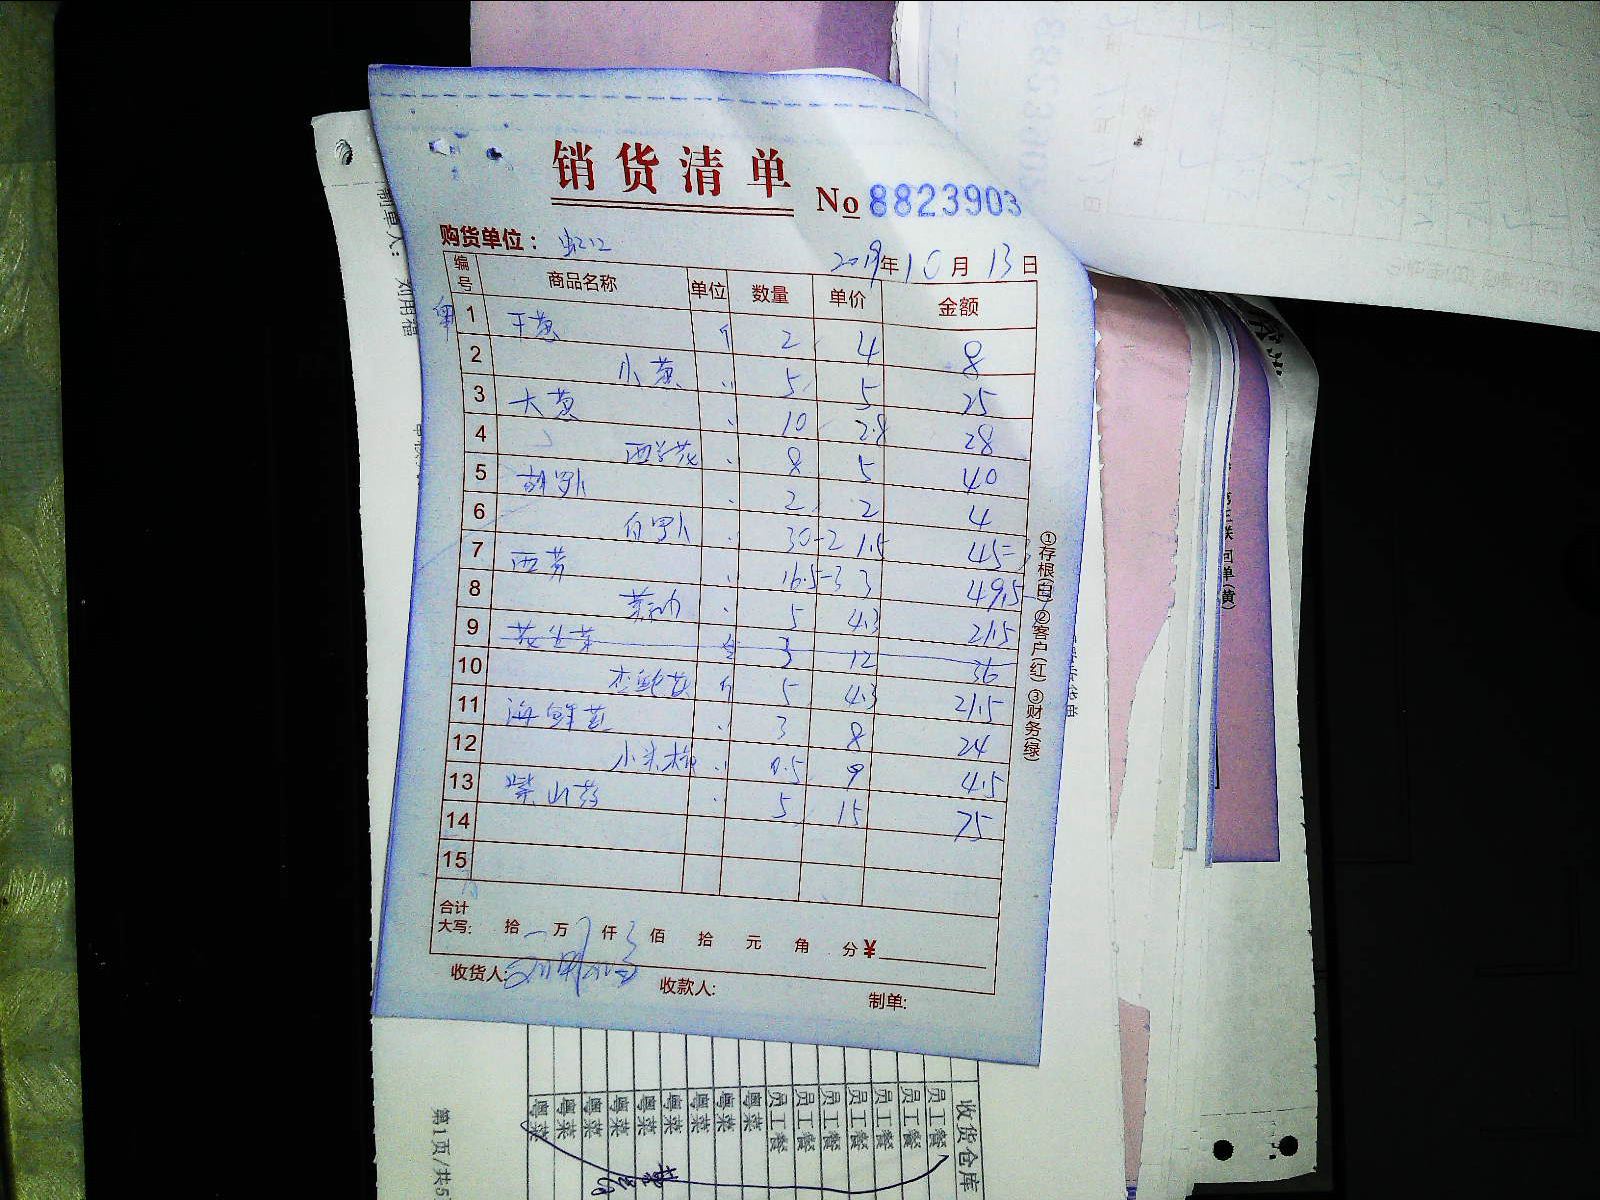 销货清单
No 8823903
购货单位: 虹口 2019年10月13日
编号 商品名称 单位 数量 单价 金额
粤 1 干葱 斤 2 4 8
2 小黄 〃 5 5 25
3 大黄 〃 10 2.8 28
4 西兰花 〃 8 5 40
5 胡罗卜 〃 2 2 4
6 白罗卜 〃 30-2 1.5 45=3
7 西芹 〃 16.5-3 3 49.5-
8 〃 5 4.3 21.5
9 花生芽 盒 3 12 36
10 杏鲍菇 斤 5 4.3 21.5
11 海鲜菇 〃 3 8 24
12 小米椒 〃 0.5 9 4.5
13 紫山药 〃 5 15 75
14
15
合计
大写: 拾 万 仟 佰 拾 元 角 分 ¥
收货人: 收款人: 制单:
①存根(白) ②客户(红) ③财务(绿)
制单人: 刘用福
第三联 回单(黄)
收货仓库
员工餐
员工餐
员工餐
员工餐
员工餐
员工餐
员工餐
粤菜
粤菜
粤菜
粤菜
粤菜
粤菜
粤菜
粤菜
粤菜
第1页/共5